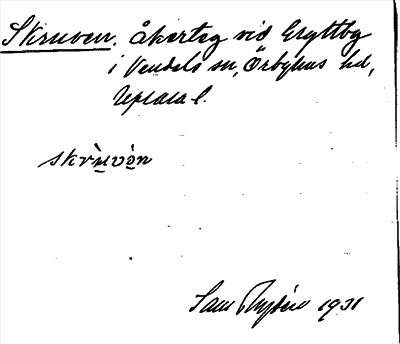 Skruven. åkerteg vid Gryttby
i Vendels sn, Örbyhus hd,
Uppsala l.
skrùvèn
Sam 1931